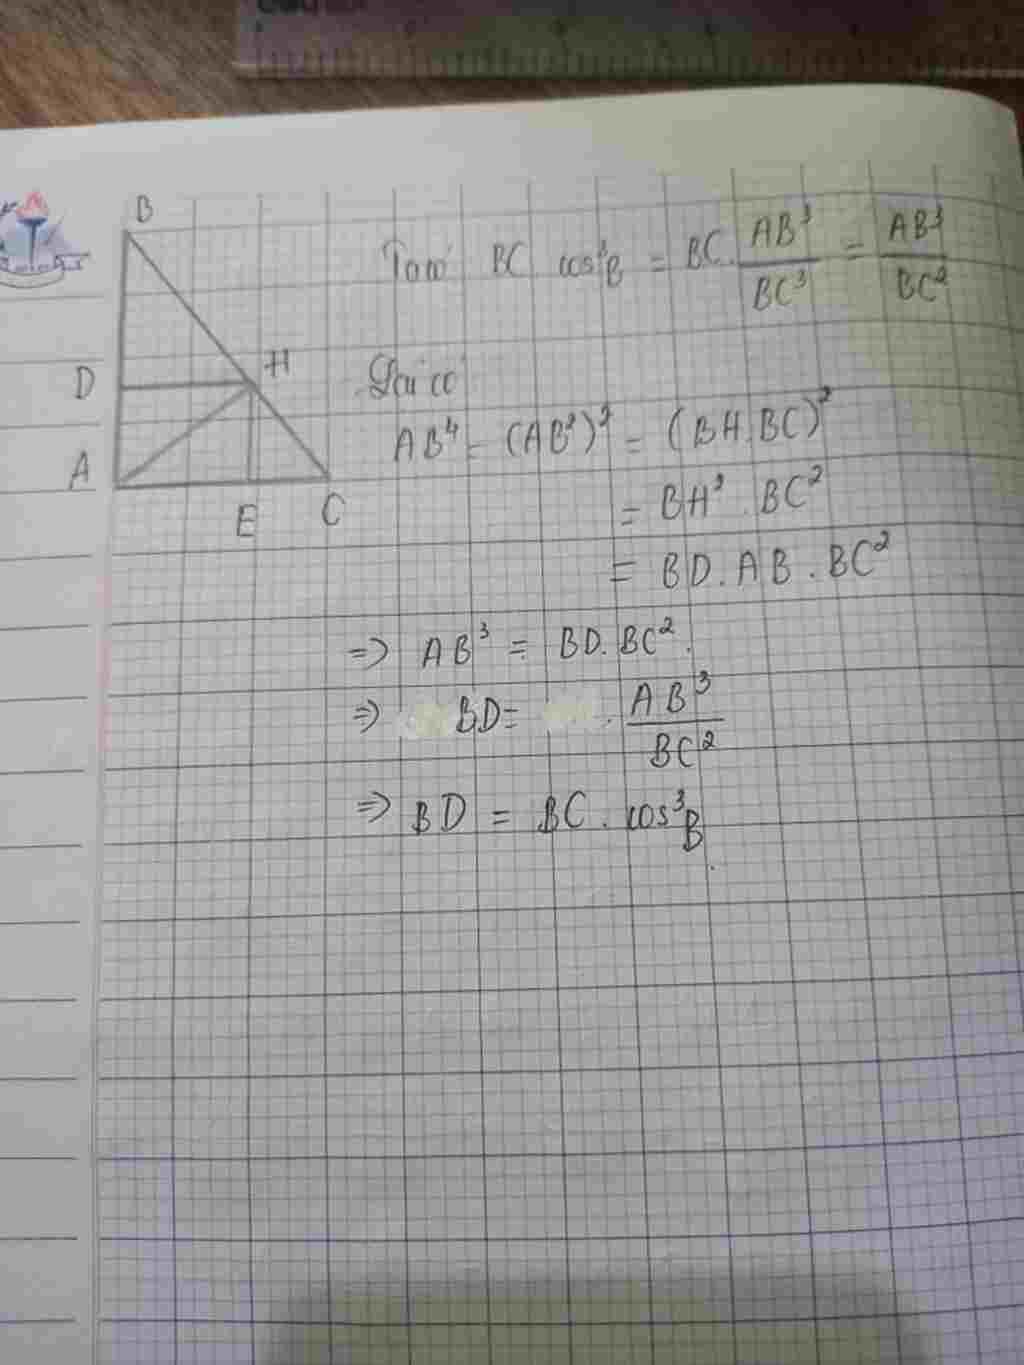 B
Ta có BC cos³B = BC . AB³/BC³ = AB³/BC²
H
D
Lại có
AB⁴ = (AB²)² = (BH.BC)²
A
E C
= BH² . BC²
= BD . AB . BC²
=> AB³ = BD . BC².
=> BD = . AB³/BC²
=> BD = BC . cos³B.